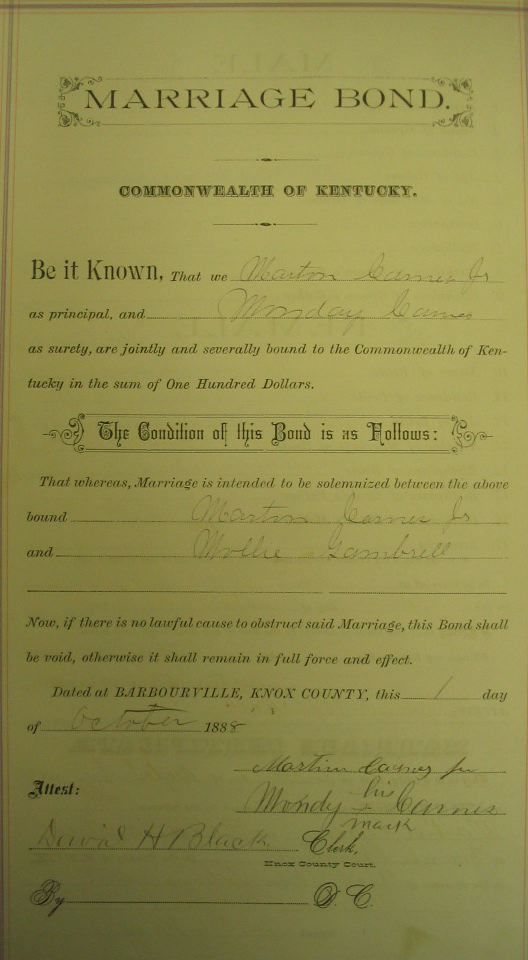 MARRIAGE BOND.
COMMONWEALTH OF KENTUCKY.
Be it Known, That we Marton Carnes Jr
as principal, and Monday Carnes
as surety, are jointly and severally bound to the Commonwealth of Ken-
tucky in the sum of One Hundred Dollars.
The Condition of this Bond is as Follows:
That whereas, Marriage is intended to be solemnized between the above
bound Marton Carnes Jr
and Mollie Gambrell
Now, if there is no lawful cause to obstruct said Marriage, this Bond shall
be void, otherwise it shall remain in full force and effect.
Dated at BARBOURVILLE, KNOX COUNTY, this 1 day
of October 1888
Martin Carnes jr
Attest:
his
Mondy x Carnes
mark
David H Black Clerk,
Knox County Court.
By D. C.